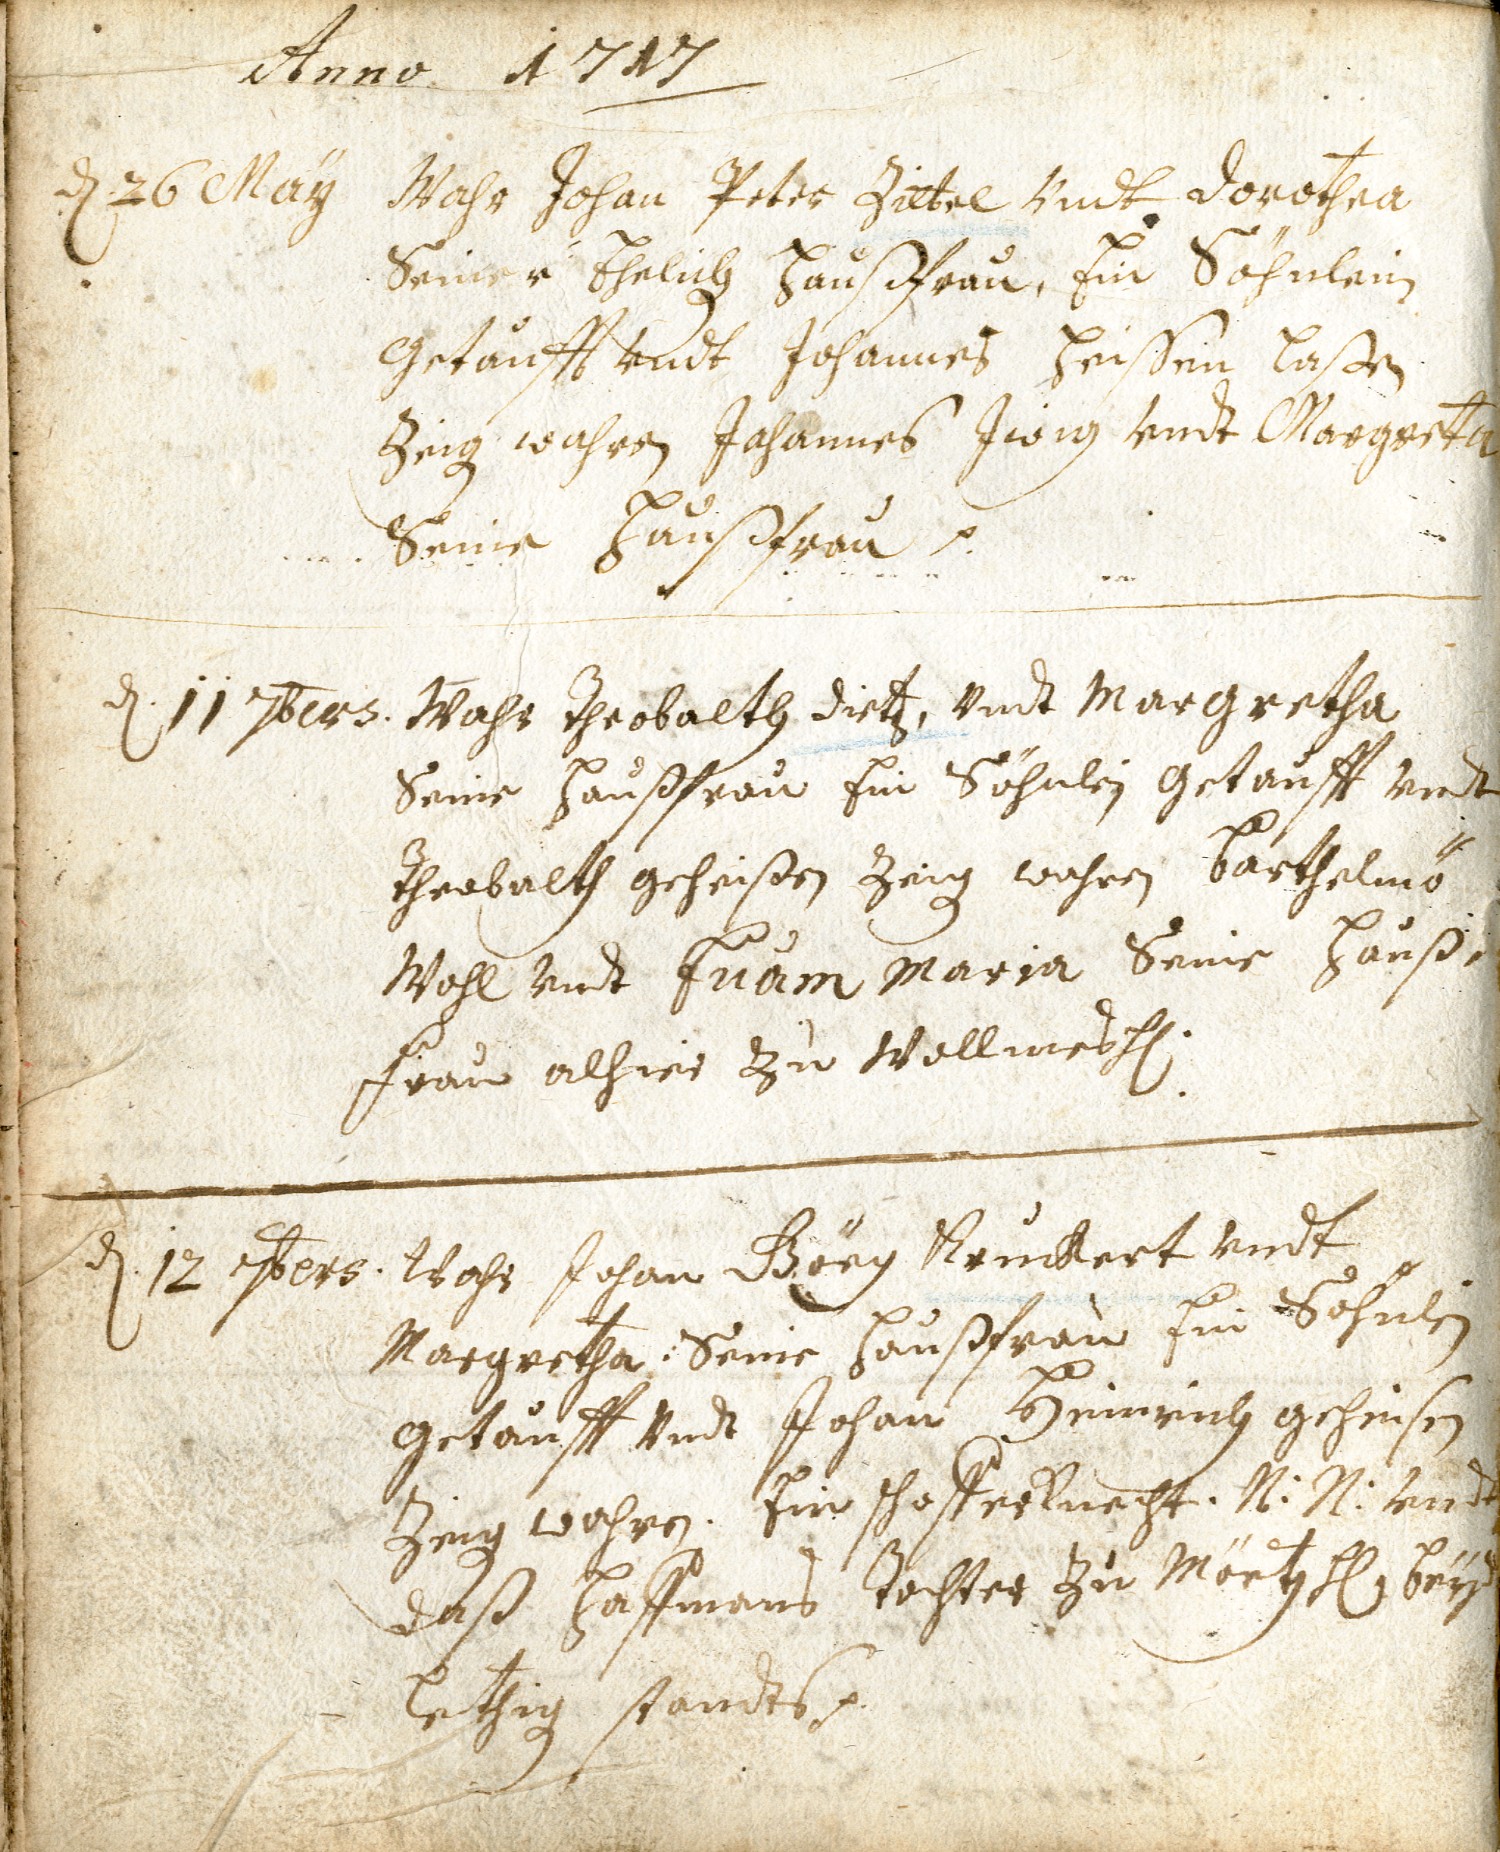 Anno 1717
d. 26 Maÿ Wahr Johan Peter Zittel Vndt dorothea
Seiner Ehelich haußfrau, Ein Söhnlein
getaufft Vndt Johannes heissen laßen
Zeig wahren Johannes Vndt Margreta
Seine haußfrau
d. 11 7bers. Wahr Theobalth dietz, Vndt Margretha
Seine haußfrau Ein Söhnlein getaufft Vndt
Theobalth geheißen Zeig wahren barthelmö
Wohl Vndt Evam Maria Seine hauß
frau alhier Zu Vollmesh.
d. 12 7bers. Wahr Johan Görg Kruckert Vndt
Margretha Seine haußfrau Ein Söhnlein
getaufft Vndt Johan Heinrich geheisen
Zeig wahren. Ein schafferknecht. N: N: Vndt
daß hoffmans tochter Zu Mörtzh. beÿd
lethig standts